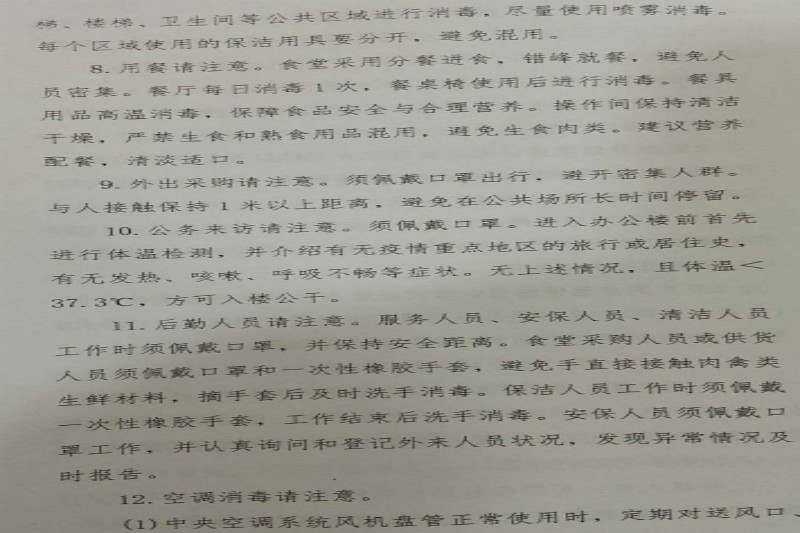 梯、楼梯、卫生间等公共区域进行消毒，尽量使用喷雾消毒。
每个区域使用的保洁用具要分开，避免混用。
8. 用餐请注意。食堂采用分餐进食，错峰就餐，避免人
员密集。餐厅每日消毒 1 次，餐桌椅使用后进行消毒。餐具
用品高温消毒，保障食品安全与合理营养。操作间保持清洁
干燥，严禁生食和熟食用品混用，避免生食肉类。建议营养
配餐，清淡适口。
9. 外出采购请注意。须佩戴口罩出行，避开密集人群。
与人接触保持 1 米以上距离，避免在公共场所长时间停留。
10. 公务来访请注意。须佩戴口罩。进入办公楼前首先
进行体温检测，并介绍有无疫情重点地区的旅行或居住史，
有无发热、咳嗽、呼吸不畅等症状。无上述情况，且体温＜
37.3℃，方可入楼公干。
11. 后勤人员请注意。服务人员、安保人员、清洁人员
工作时须佩戴口罩，并保持安全距离。食堂采购人员或供货
人员须佩戴口罩和一次性橡胶手套，避免手直接接触肉禽类
生鲜材料，摘手套后及时洗手消毒。保洁人员工作时须佩戴
一次性橡胶手套，工作结束后洗手消毒。安保人员须佩戴口
罩工作，并认真询问和登记外来人员状况，发现异常情况及
时报告。
12. 空调消毒请注意。
(1) 中央空调系统风机盘管正常使用时，定期对送风口、